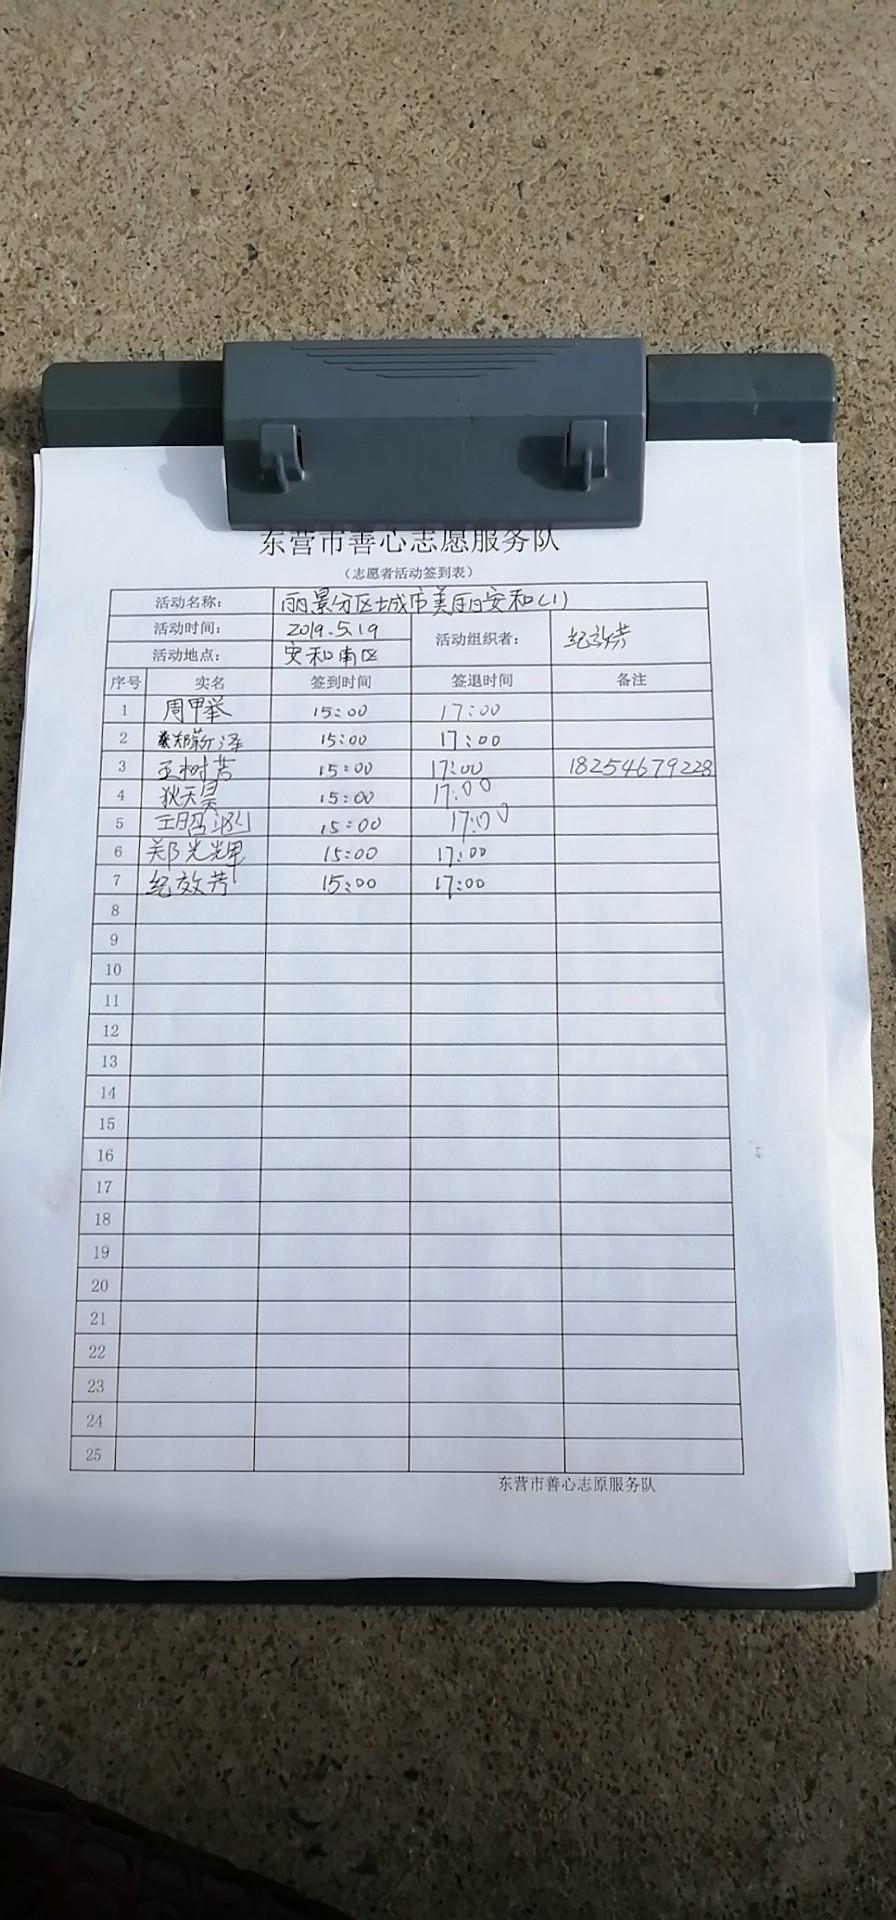 东营市善心志愿服务队
（志愿者活动签到表）
活动名称： 丽景分区城市美丽安和(1)
活动时间： 2019.5.19 活动组织者： 纪效芳
活动地点： 安和南区
序号 实名 签到时间 签退时间 备注
1 周甲举 15:00 17:00
2 郑蔚泽 15:00 17:00
3 王树芳 15:00 17:00 18254679228
4 狄天昊 15:00 17:00
5 15:00 17:00
6 郑光辉 15:00 17:00
7 纪效芳 15:00 17:00
8
9
10
11
12
13
14
15
16
17
18
19
20
21
22
23
24
25
东营市善心志原服务队